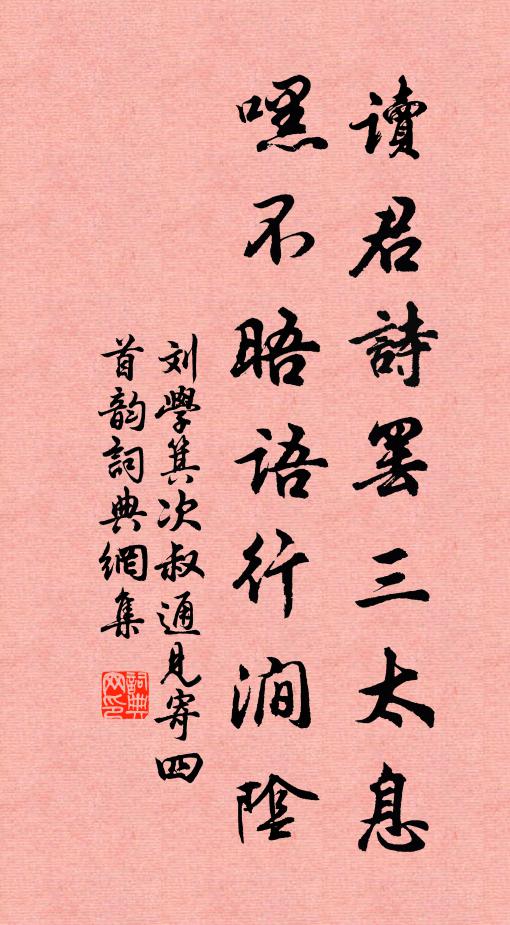 讀君詩罢三太息
嘿不晤語行澗陰
刘學箕次叔通見寄四
首韵詞典網集
詞典网印